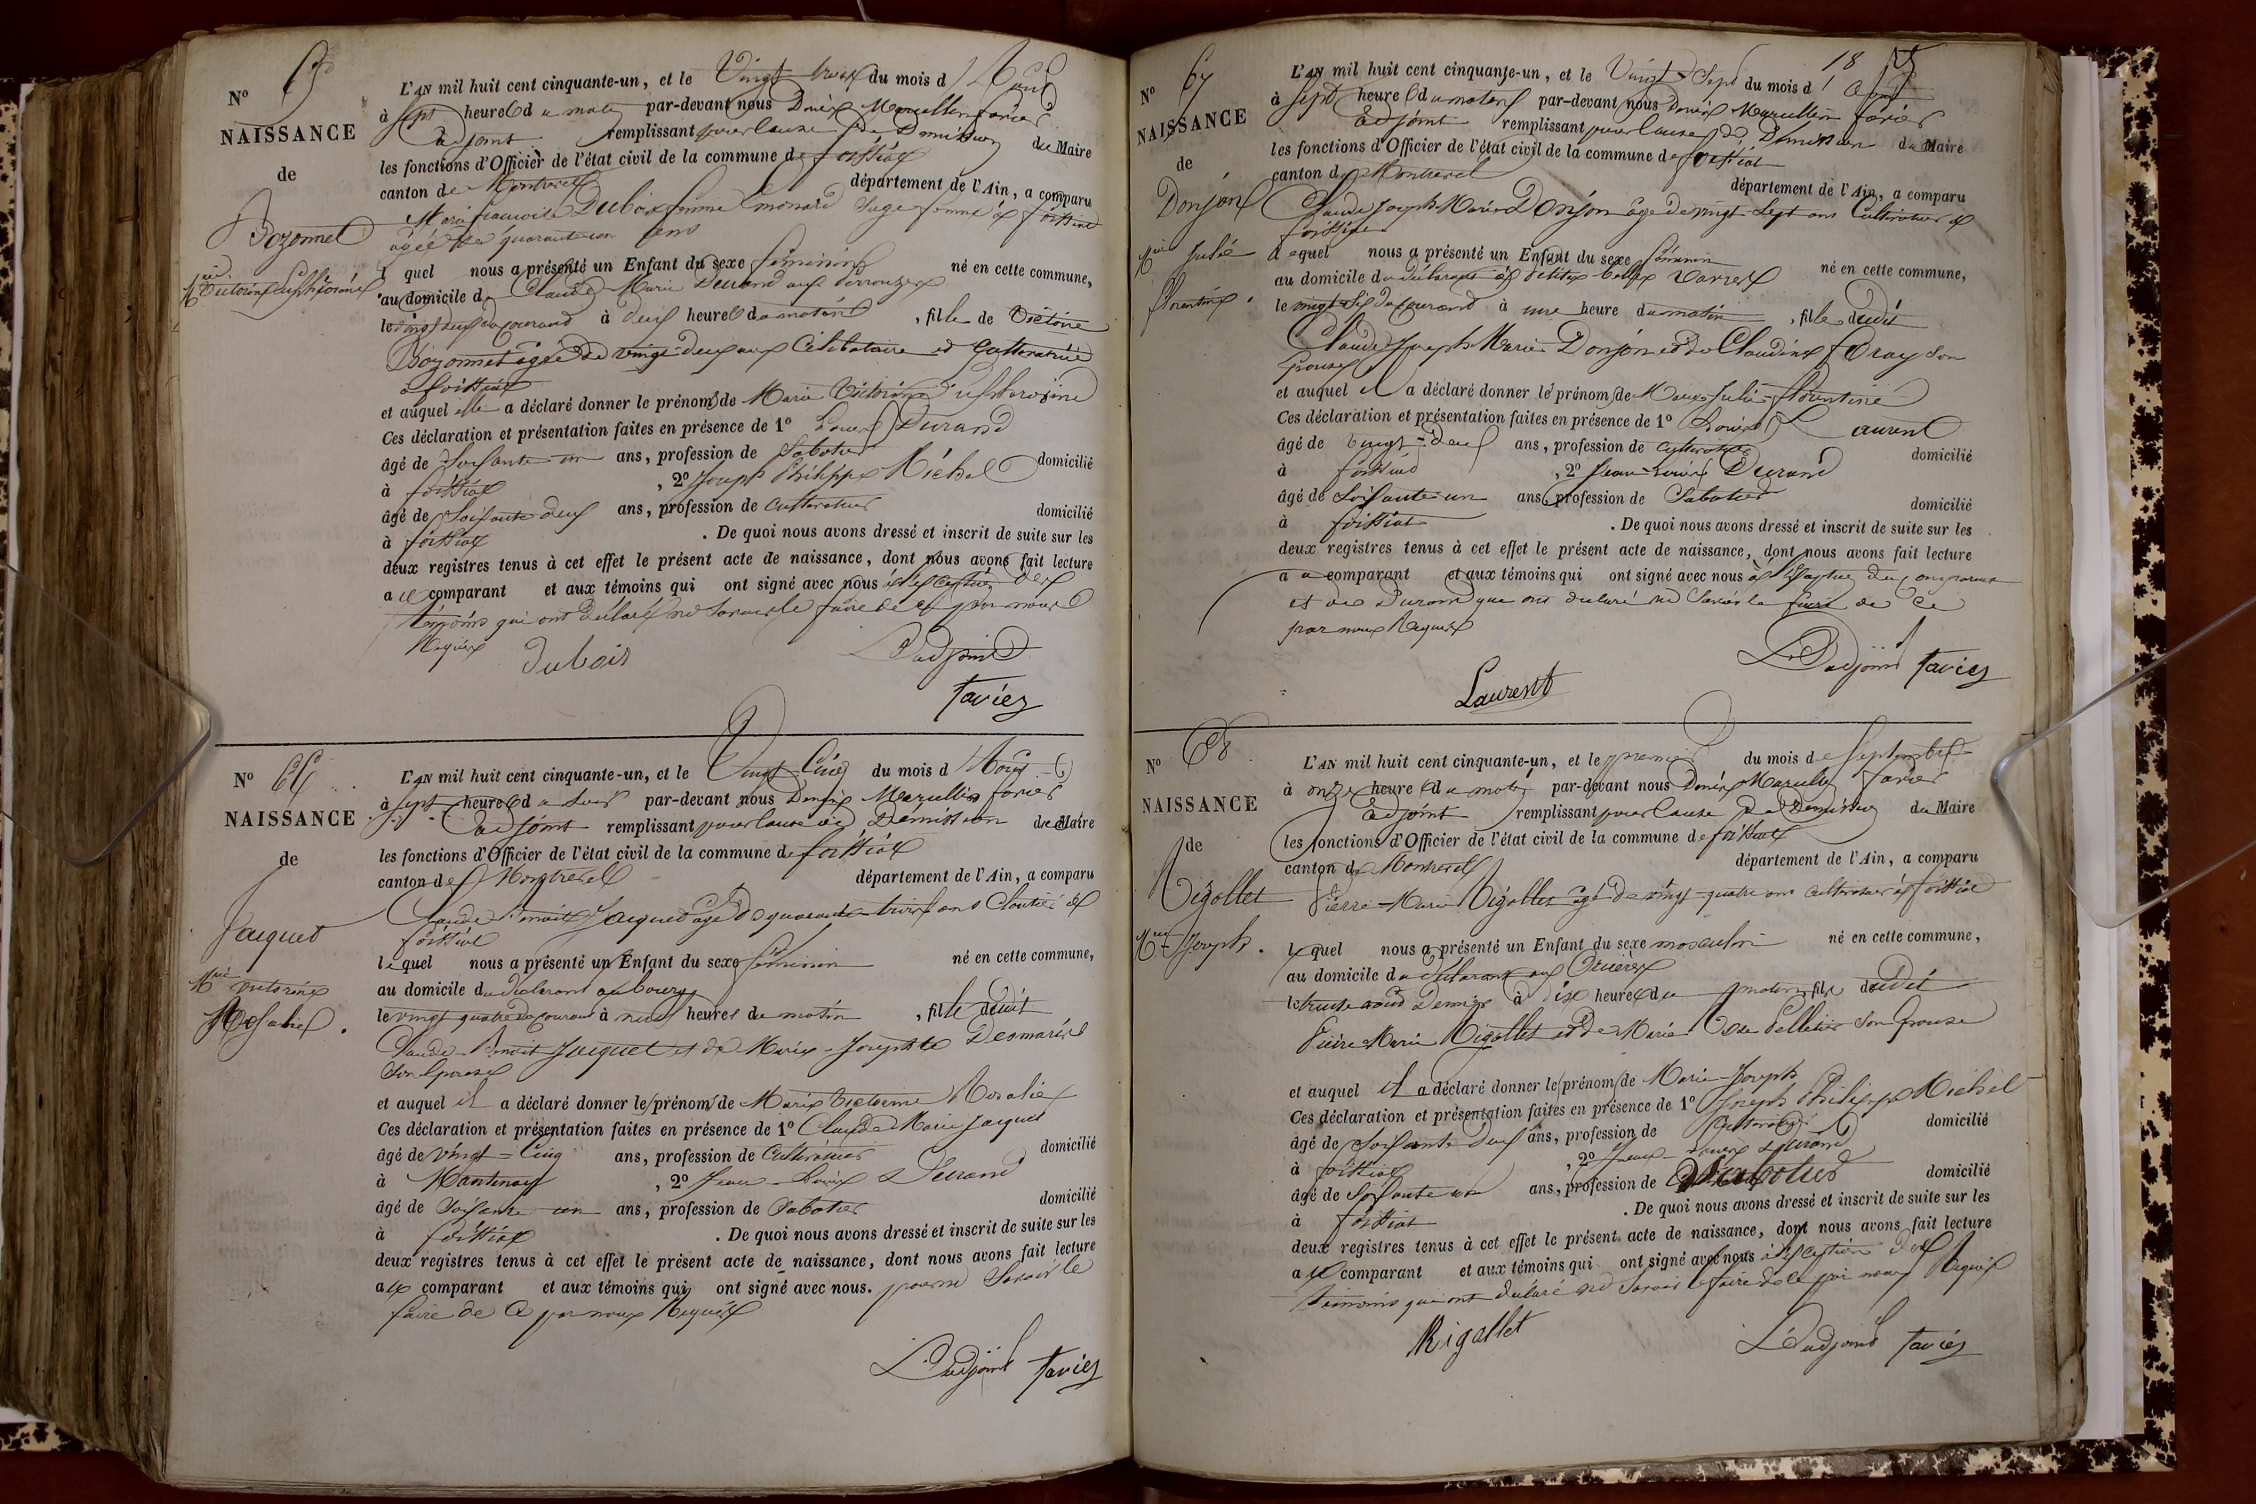 Nº 65
NAISSANCE
de
Bozonnet
Mie Victorine Euphrosine
L'AN mil huit cent cinquante-un, et le Vingt trois du mois d'Aout
à sept heures du matin par-devant nous Denis Marcellin favier
adjoint remplissant pour cause de Demission du Maire
les fonctions d'Officier de l'état civil de la commune de foissiat
canton de Montrevel département de l'Ain, a comparu
Marie françoise Dubois femme monard sage femme à foissiat
agée de quarante un ans
l quel nous a présenté un Enfant du sexe féminin né en cette commune,
au domicile de Claude Marie Durand aux
le vingt deux du courand à deux heures du matin, fille de Victoire
Bozonnet agée de vingt deux ans Célibataire et Cultivatrice
à foissiat
et auquel elle a déclaré donner le prénoms de Marie Victorine Euphrosine
Ces déclaration et présentation faites en présence de 1º Louis Durand
âgé de Soixante un ans, profession de Sabotier domicilié
à foissiat, 2º Joseph Philippe Michel
âgé de Soixante deux ans, profession de cultivateur domicilié
à foissiat. De quoi nous avons dressé et inscrit de suite sur les
deux registres tenus à cet effet le présent acte de naissance, dont nous avons fait lecture
a ux comparant et aux témoins qui ont signé avec nous à l'exception des
témoins qui ont déclaré ne savoir le faire de ce par nous
Requis
Dubois L'adjoint
favier
Nº 66
NAISSANCE
de
Jacquet
Mie victorine
Rosalie.
L'AN mil huit cent cinquante-un, et le Vingt Cinq du mois d'Aout
à sept heures du soir par-devant nous Denis Marcellin favier
adjoint remplissant pour cause de Demission du Maire
les fonctions d'Officier de l'état civil de la commune de foissiat
canton de Montrevel département de l'Ain, a comparu
Claude Benoit Jacquet agé de quarante trois ans Cloutier à
foissiat
lequel nous a présenté un Enfant du sexe féminin né en cette commune,
au domicile du declarant au bourg
le vingt quatre du courant à neuf heures du matin, fille dudit
Claude-Benoit Jacquet et de Marie-Josephte Desmaris
Son Epouse
et auquel il a déclaré donner le prénom de Marie Victorine Rosalie
Ces déclaration et présentation faites en présence de 1º Claude Marie Jacquet
âgé de vingt-Cinq ans, profession de Cultivateur domicilié
à Mantenay, 2º Jean-Louis Durand
âgé de Soixante un ans, profession de Sabotier domicilié
à foissiat. De quoi nous avons dressé et inscrit de suite sur les
deux registres tenus à cet effet le présent acte de naissance, dont nous avons fait lecture
a ux comparant et aux témoins qui ont signé avec nous. pour ne Savoir le
faire de Ce par nous Requis
L'adjoint favier
18
Nº 67
NAISSANCE
de
Donjon
Mie Julie
florentine.
L'AN mil huit cent cinquante-un, et le Vingt-Sept du mois d'Aout
à Sept heures du matin par-devant nous Denis Marcellin favier
adjoint remplissant pour cause de Demission du Maire
les fonctions d'Officier de l'état civil de la commune de foissiat
canton de Montrevel département de l'Ain, a comparu
Claude Joseph Marie Donjon agé de vingt-Sept ans Cultivateur à
foissiat
lequel nous a présenté un Enfant du sexe féminin né en cette commune,
au domicile du déclarant
le vingt-Six du courand à une heure du matin, fille dudit
Claude Joseph Marie Donjon et de Claudine foray Son
Epouse
et auquel il a déclaré donner le prénom de Marie Julie-florentine
Ces déclaration et présentation faites en présence de 1º Louis Laurent
âgé de vingt-deux ans, profession de cultivateur domicilié
à foissiat, 2º Jean-Louis Durand
âgé de Soixante-un ans, profession de Sabotier domicilié
à foissiat. De quoi nous avons dressé et inscrit de suite sur les
deux registres tenus à cet effet le présent acte de naissance, dont nous avons fait lecture
a u comparant et aux témoins qui ont signé avec nous à l'Exception du Comparant
et de Durand que ont déclaré ne Savoir le faire de Ce
par nous Requis
L'adjoint favier
Laurent
Nº 68
NAISSANCE
de
Rigollet
Mie Joseph.
L'AN mil huit cent cinquante-un, et le premier du mois de Septembre
à onze heure du matin par-devant nous Denis Marcellin favier
adjoint remplissant pour cause de Demission du Maire
les fonctions d'Officier de l'état civil de la commune de foissiat
canton de Montrevel département de l'Ain, a comparu
Pierre-Marie Rigollet agé de vingt-quatre ans cultivateur à foissiat
lequel nous a présenté un Enfant du sexe masculin né en cette commune,
au domicile du déclarant aux
le trente aout Dernier à dix heures du matin, fils dudit
Pierre Marie Rigollet et de Marie Pelletier Son Epouse
et auquel il a déclaré donner le prénom de Marie-Joseph
Ces déclaration et présentation faites en présence de 1º Joseph Philippe Michel
âgé de Soixante Deux ans, profession de Cultivateur domicilié
à foissiat, 2º Jean-Louis Durand
âgé de Soixante un ans, profession de Sabotier domicilié
à foissiat. De quoi nous avons dressé et inscrit de suite sur les
deux registres tenus à cet effet le présent acte de naissance, dont nous avons fait lecture
a u comparant et aux témoins qui ont signé avec nous à l'exception des
témoins qui ont déclaré ne Savoir le faire de ce par nous Requis
Rigollet L'adjoint favier